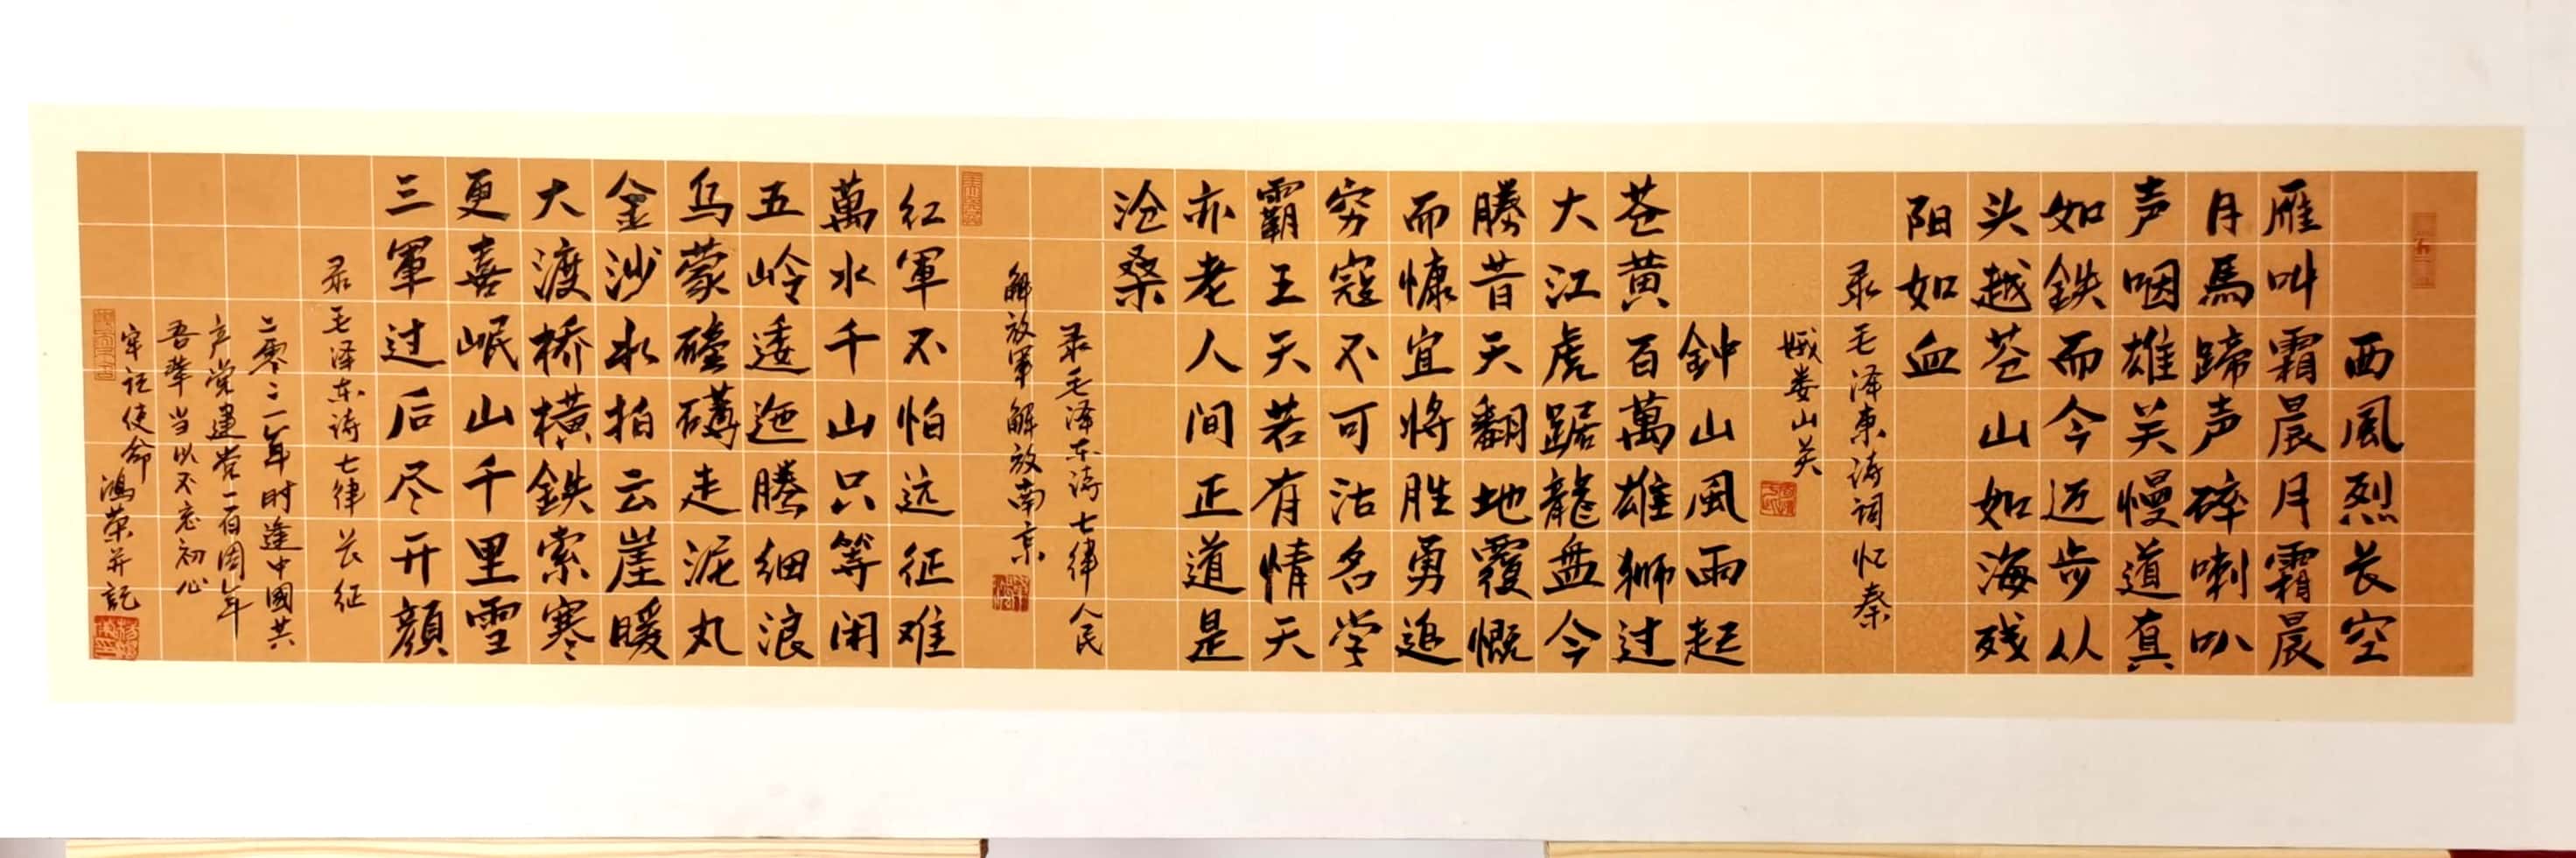 西風烈长空
雁叫霜晨月霜晨
月馬蹄声碎喇叭
声咽雄关慢道真
如鉄而今迈步从
头越苍山如海残
阳如血
录毛泽東诗词 忆秦
娥娄山关
鈡山風雨起
苍黄百萬雄狮过
大江虎踞龍盘今
勝昔天翻地覆慨
而慷宜将胜勇追
穷寇不可沽名学
霸王天若有情天
亦老人间正道是
沧桑
录毛泽东诗七律人民
解放軍解放南京
红軍不怕远征难
萬水千山只等闲
五岭逶迤腾细浪
乌蒙磅礴走泥丸
金沙水拍云崖暖
大渡桥横鉄索寒
更喜岷山千里雪
三軍过后尽开顔
录毛泽东诗七律长征
二零二一年时逢中國共
产党建党一百周年
吾辈当以不忘初心
牢记使命 鸿荣并記